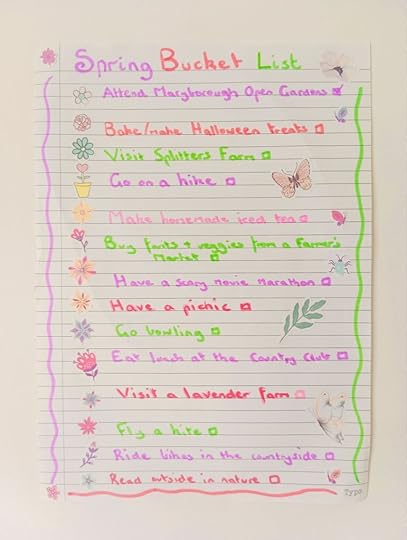 Spring Bucket List
Attend Maryborough Open Gardens
Bake/make Halloween treats
Visit Splitters Farm
Go on a hike
Make homemade iced tea
Buy fruits + veggies from a Farmer's
Market
Have a scary movie marathon
Have a picnic
Go bowling
Eat lunch at the Country Club
Visit a lavender farm
Fly a kite
Ride bikes in the countryside
Read outside in nature